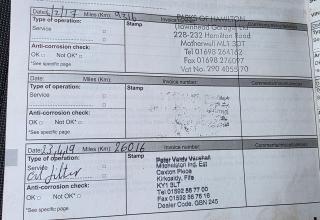 Date: 1/2/17 Miles (Km): 9216 Invoice number:
Type of operation: Stamp
Service
Anti-corrosion check:
OK □ Not OK* □
*See specific page
PARKS OF HAMILTON
228-232 Hamilton Road
Motherwell ML1 3DT
Tel 01698 264162
Fax 01698 276097
Vat No. 290 4055 70
Date: Miles (Km): Invoice number:
Type of operation: Stamp
Service
Anti-corrosion check:
OK □ Not OK* □
*See specific page
Date: 23/4/19 Miles (Km): 26016 Invoice number:
Type of operation: Stamp
Service
Oil filter
Anti-corrosion check:
OK □ Not OK* □
*See specific page
Peter Vardy Vauxhall
Mitchelston Ind. Est
Caxton Place
Kirkcaldy, Fife
KY1 3LT
Tel 01592 56 77 00
Fax 01592 56 76 16
Dealer Code. GBN 245